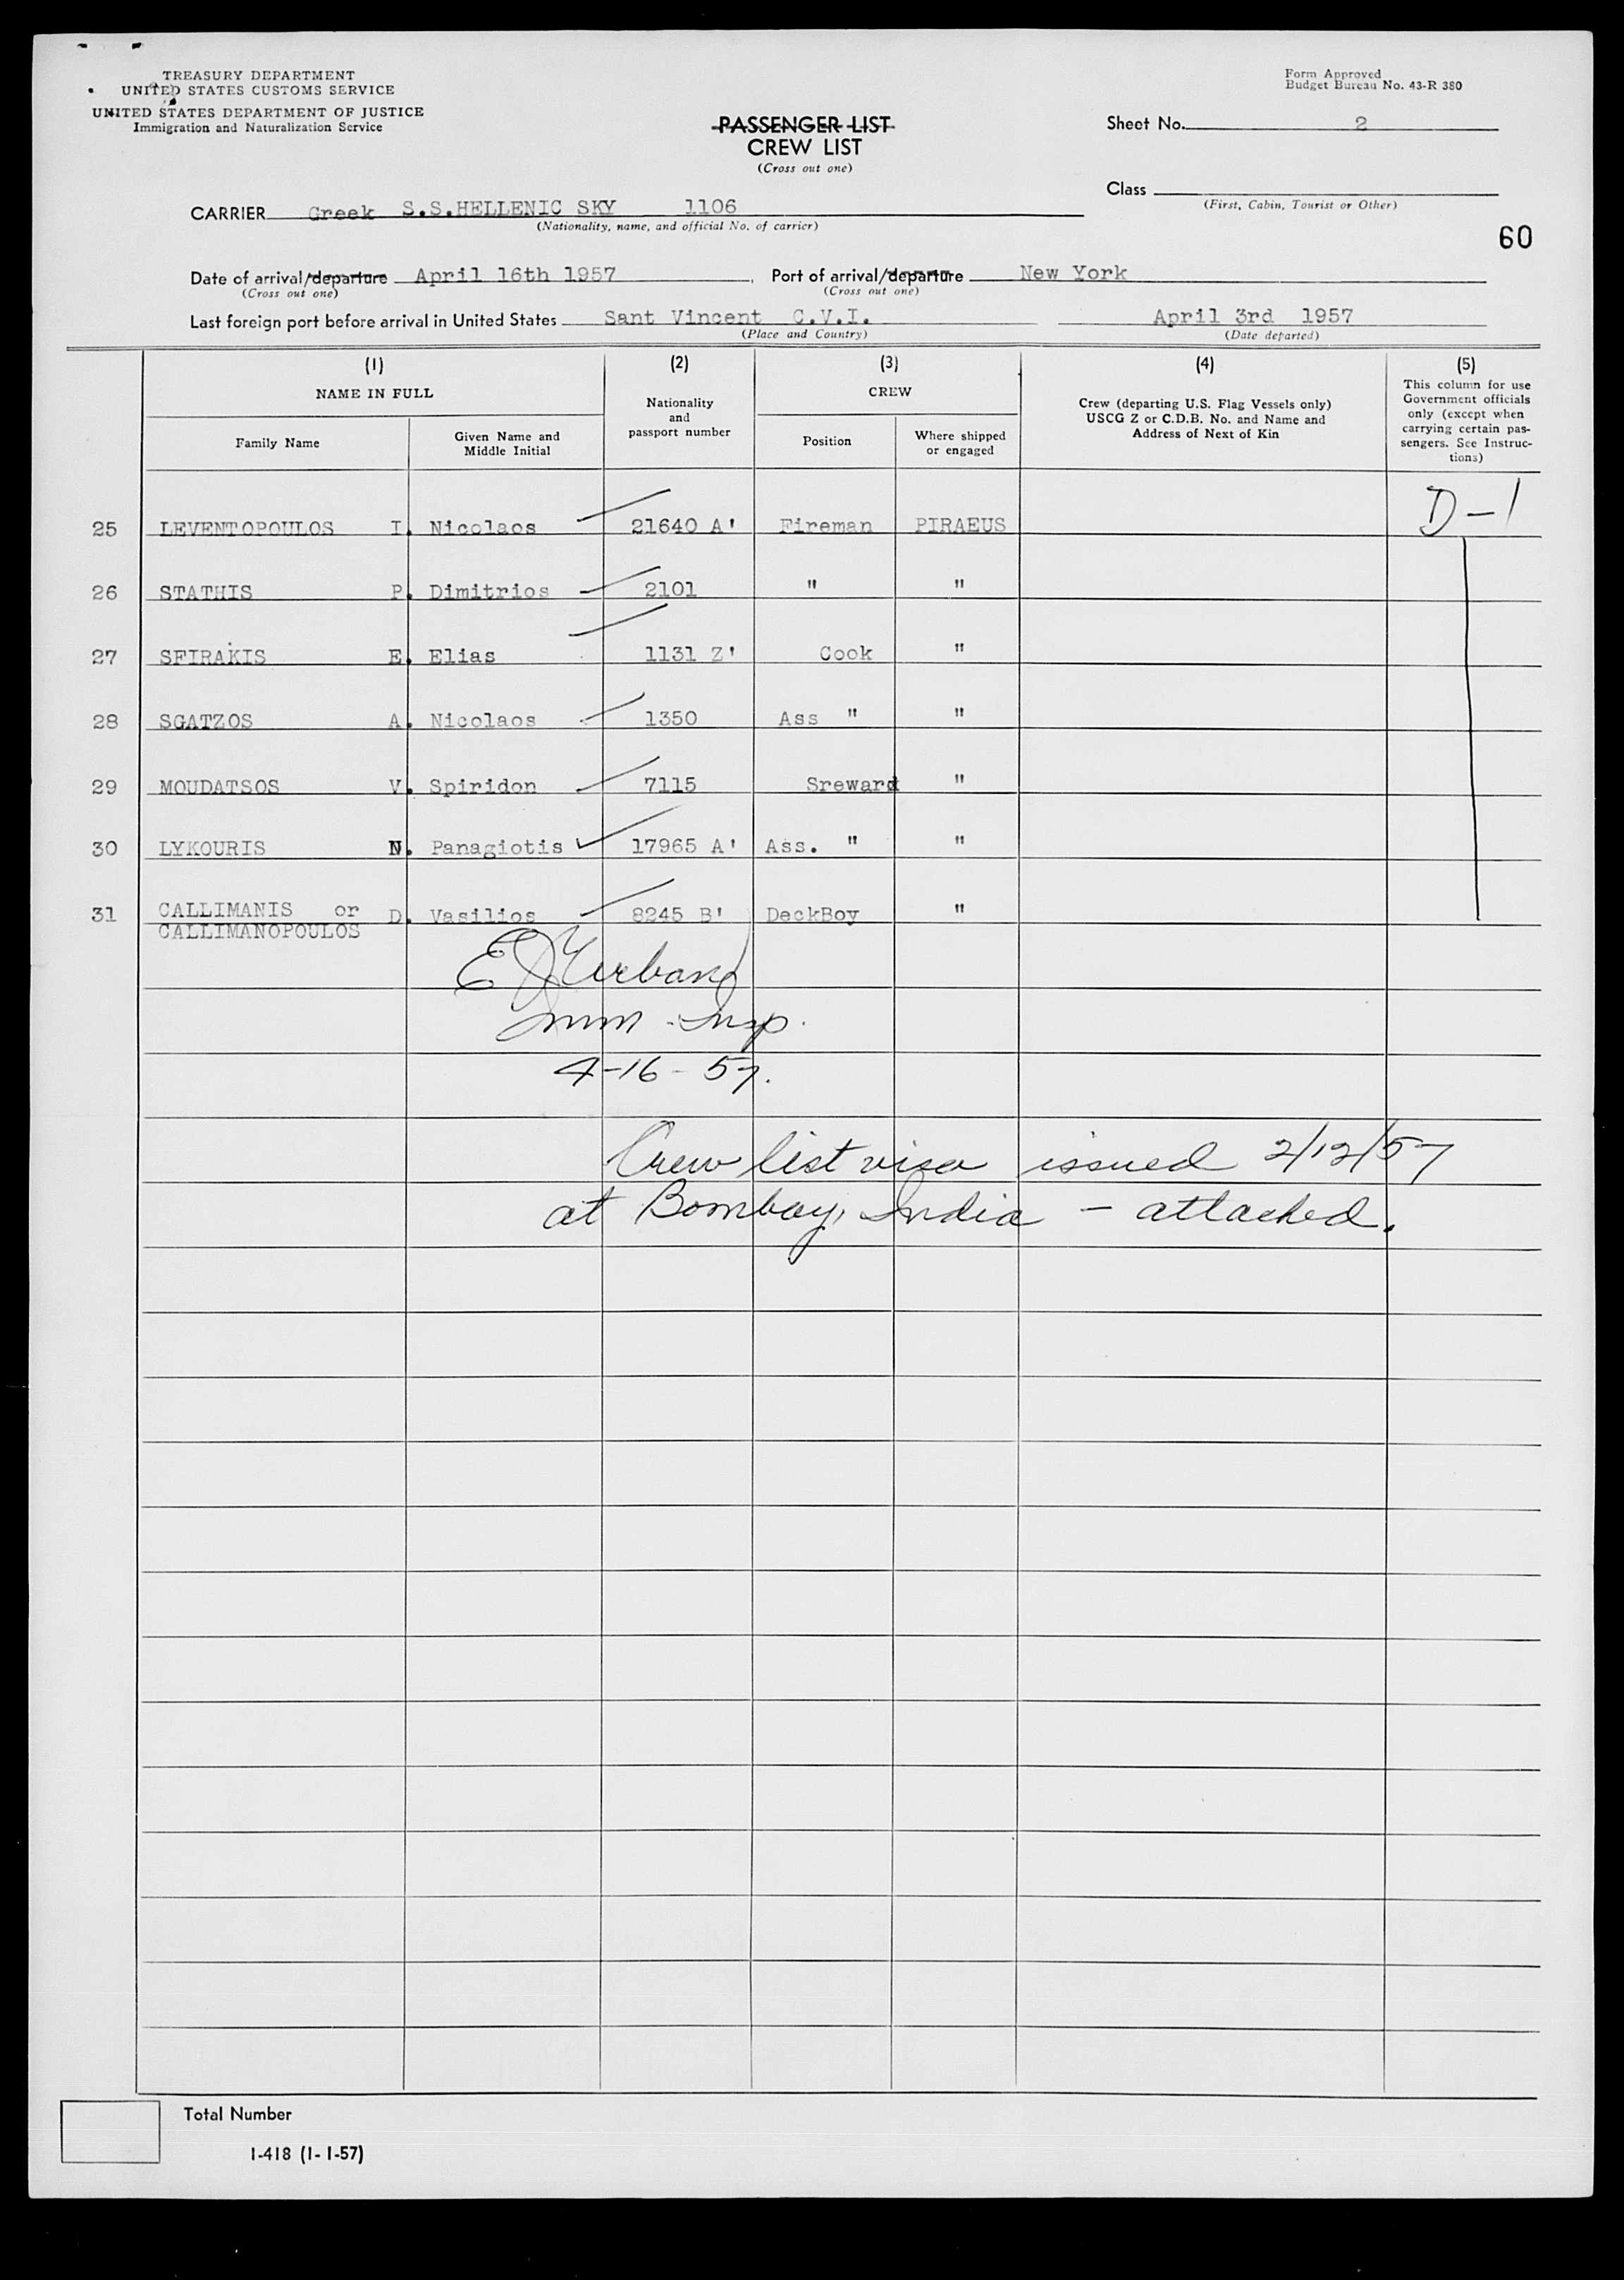 TREASURY DEPARTMENT
UNITED STATES CUSTOMS SERVICE
UNITED STATES DEPARTMENT OF JUSTICE
Immigration and Naturalization Service
Form Approved
Budget Bureau No. 43-R 380
PASSENGER LIST
CREW LIST
(Cross out one)
Sheet No. 2
Class
(First, Cabin, Tourist or Other)
CARRIER Greek S.S.HELLENIC SKY 1106
(Nationality, name, and official No. of carrier)
60
Date of arrival/departure April 16th 1957, Port of arrival/departure New York
(Cross out one) (Cross out one)
Last foreign port before arrival in United States Sant Vincent C.V.I. April 3rd 1957
(Place and Country) (Date departed)
(1) (2) (3) (4) (5)
NAME IN FULL
Family Name
Given Name and
Middle Initial
Nationality
and
passport number
CREW
Position
Where shipped
or engaged
Crew (departing U.S. Flag Vessels only)
USCG Z or C.D.B. No. and Name and
Address of Next of Kin
This column for use
Government officials
only (except when
carrying certain pas-
sengers. See Instruc-
tions)
25 LEVENTOPOULOS I. Nicolaos 21640 A' Fireman PIRAEUS D-1
26 STATHIS P. Dimitrios 2101 " "
27 SFIRAKIS E. Elias 1131 Z' Cook "
28 SGATZOS A. Nicolaos 1350 Ass " "
29 MOUDATSOS V. Spiridon 7115 Sreward "
30 LYKOURIS N. Panagiotis 17965 A' Ass. " "
31 CALLIMANIS or D. Vasilios 8245 B' DeckBoy "
CALLIMANOPOULOS
Imm. Insp.
4-16-57.
Crew list visa issued 2/12/57
at Bombay, India - attached.
Total Number
I-418 (1-1-57)